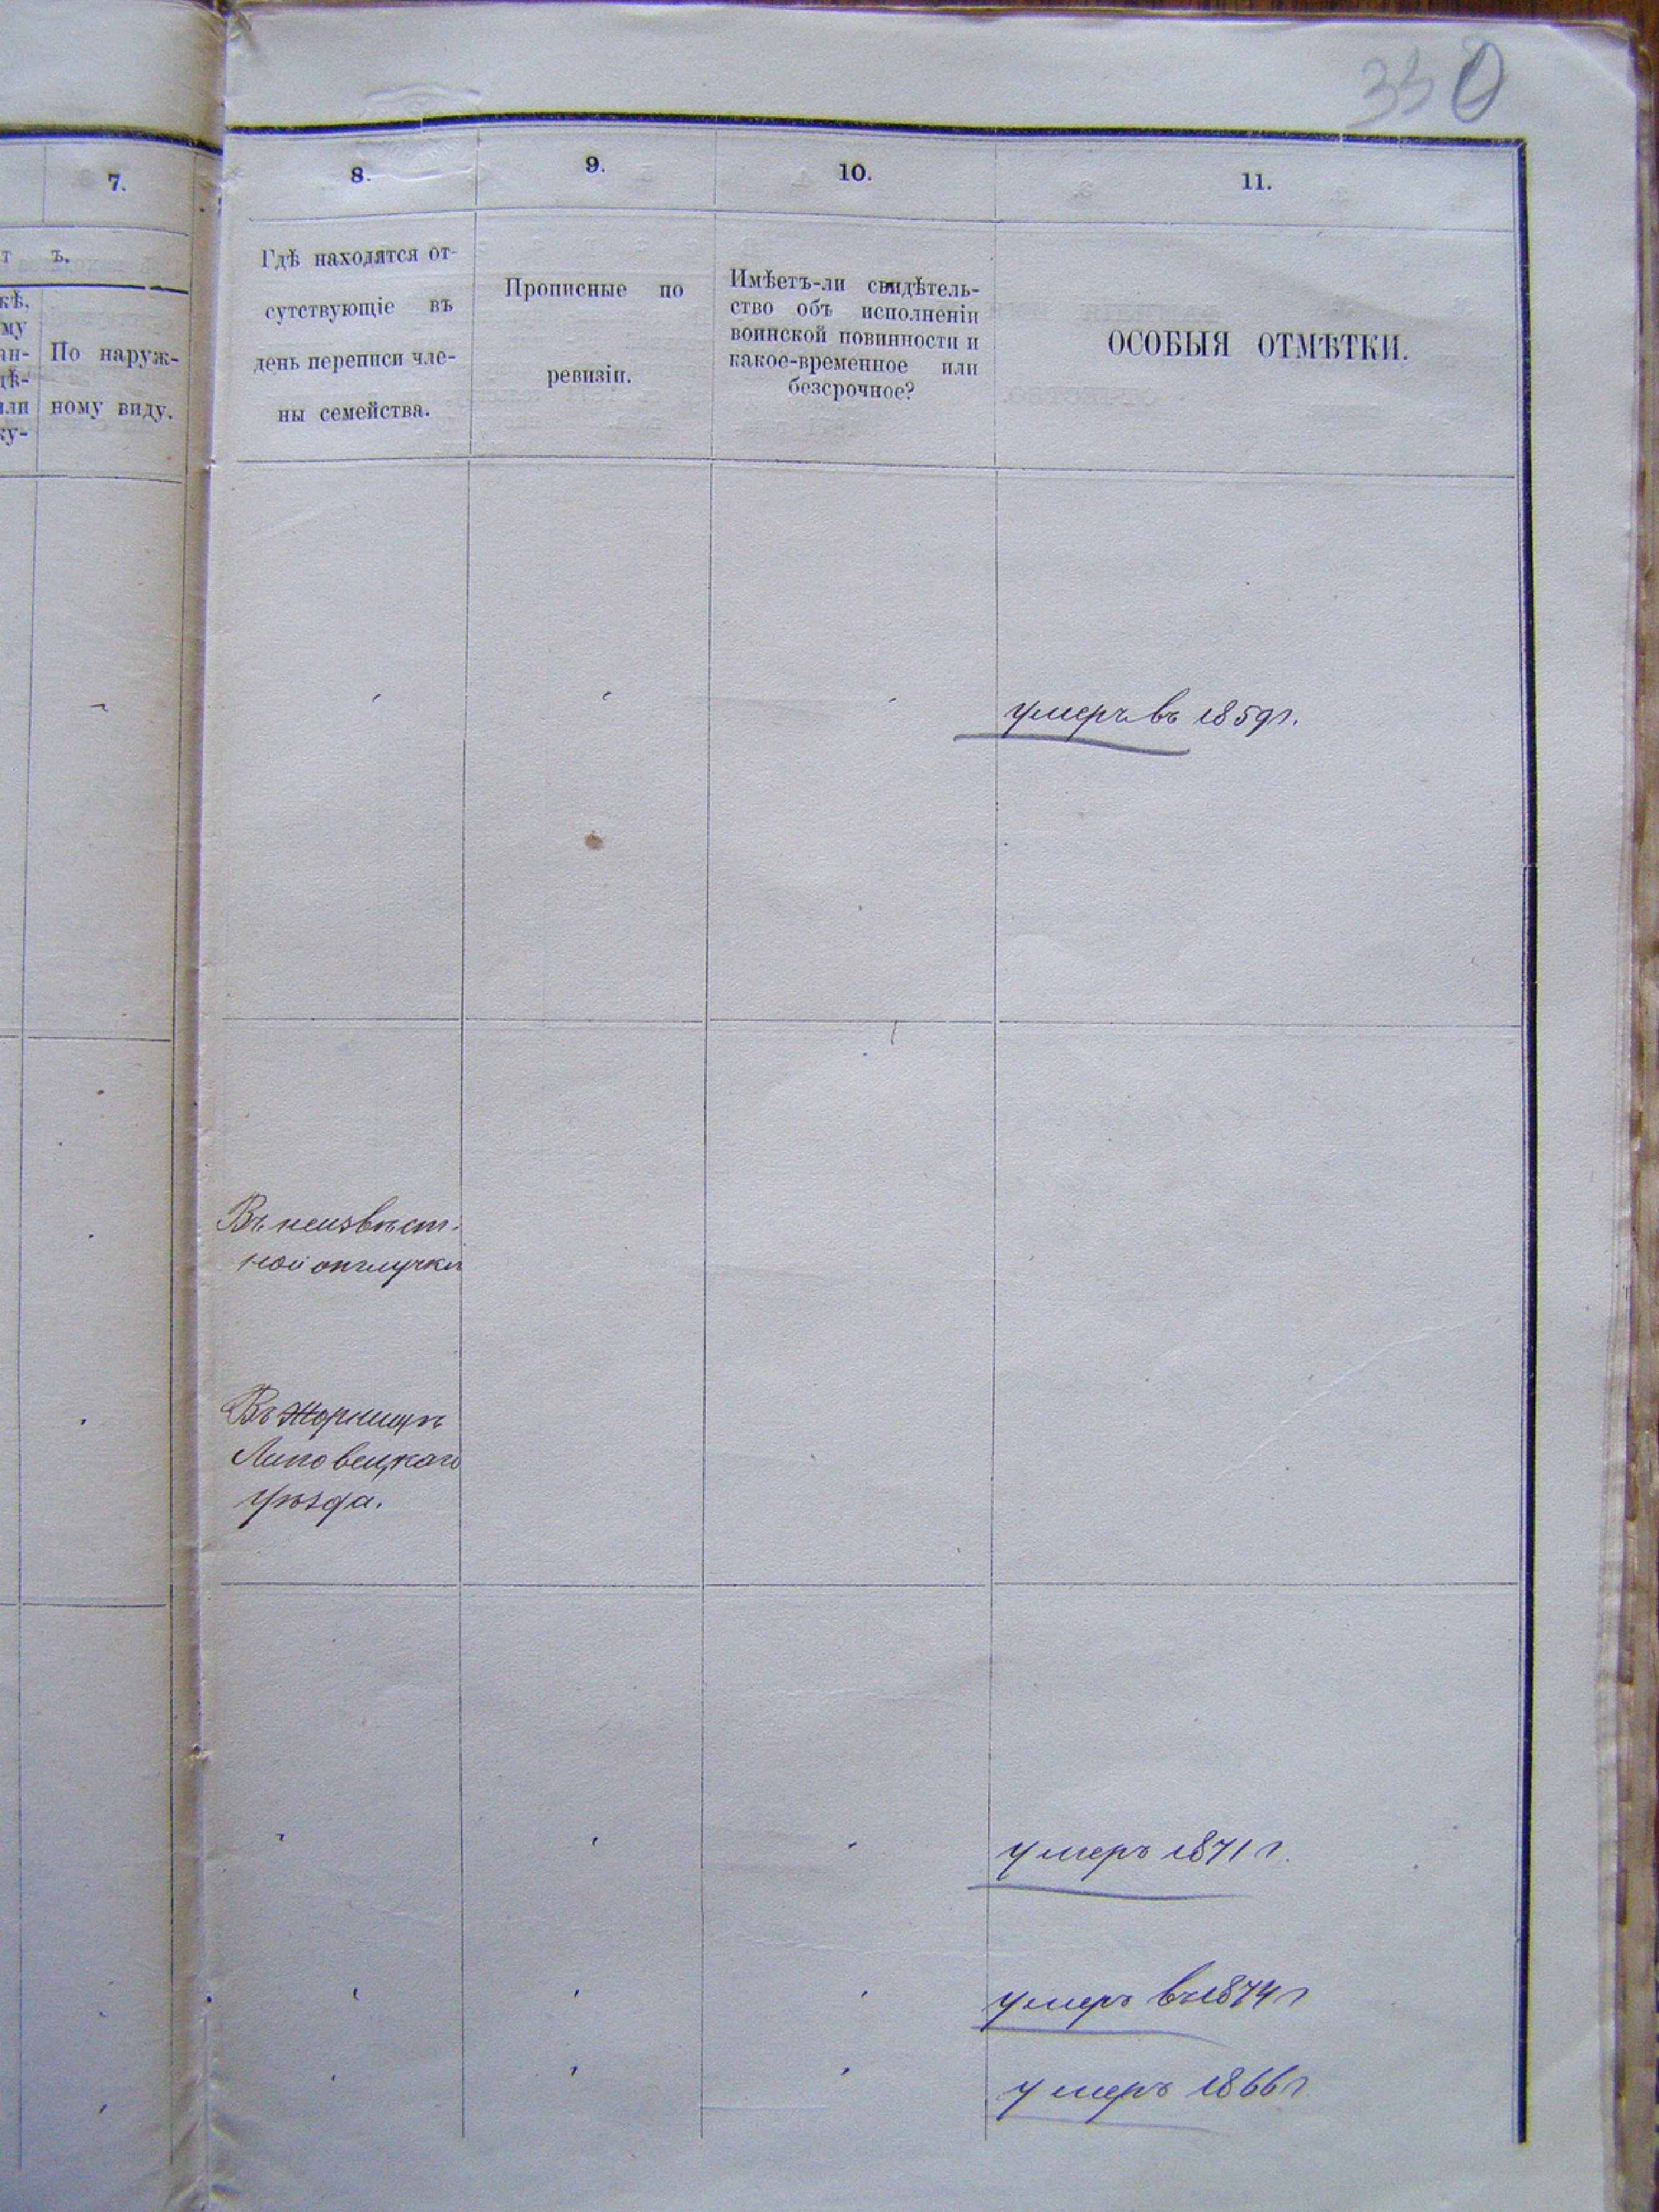 330
7.
8.
9.
10.
11.
т ъ.
кѣ,
му
ан-
дѣ-
или
ку-
По наруж-
ному виду.
Гдѣ находятся от-
сутствующіе въ
день переписи чле-
ны семейства.
Прописные по
ревизіи.
Имѣетъ-ли свидѣтель-
ство объ исполненіи
воинской повинности и
какое-временное или
безсрочное?
ОСОБЫЯ ОТМѢТКИ.
умеръ въ 1859 г.
Въ неизвѣст-
ной отлучкѣ
Въ Жорнищѣ
Липовецкаго
уѣзда.
умеръ 1871 г.
умеръ въ 1874 г
умеръ 1866 г.